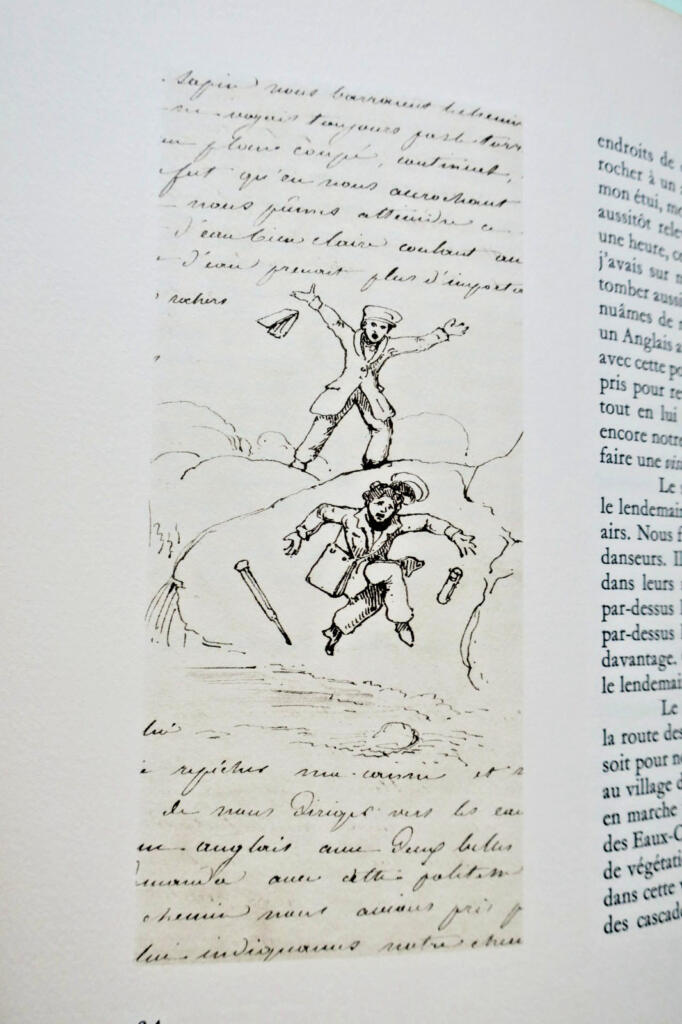 sapin nous barraient le chemin
voyais toujours par le
coupé, continuer,
fut qu'en nous accrochant
nous pûmes atteindre
d'eau bien claire coulant au
d'eau prenait plus d'importa
rochers
repêcher ma et
de nous Diriger vers les eau
anglais avec Deux belles
manda avec cette politess
chemin nous avions pris p
lui indiquames notre chem
24
endroits de
rocher à un
mon étui, mo
aussitôt rele
une heure, ce
j'avais sur n
tomber aussi
nuâmes de
un Anglais a
avec cette po
pris pour re
tout en lui
encore notre
faire une
Le
le lendemain
airs. Nous f
danseurs. Il
dans leurs
par-dessus l
par-dessus l
davantage.
le lendemai
Le
la route des
soit pour no
au village d
en marche
des Eaux-C
de végétati
dans cette v
des cascade